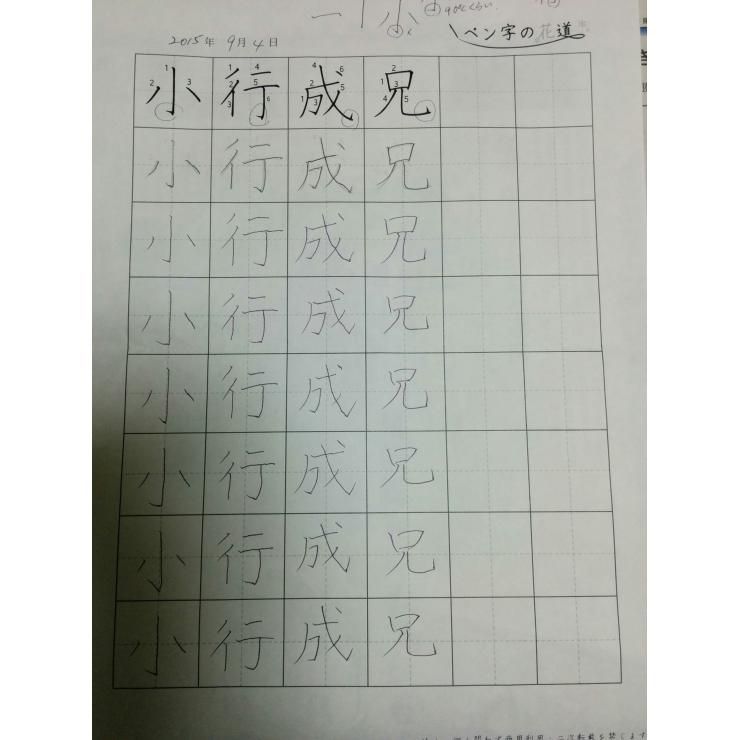 2015年 9月 4日
ペン字の花道
小 行 成 兄
小 行 成 兄
小 行 成 兄
小 行 成 兄
小 行 成 兄
小 行 成 兄
小 行 成 兄
小 行 成 兄